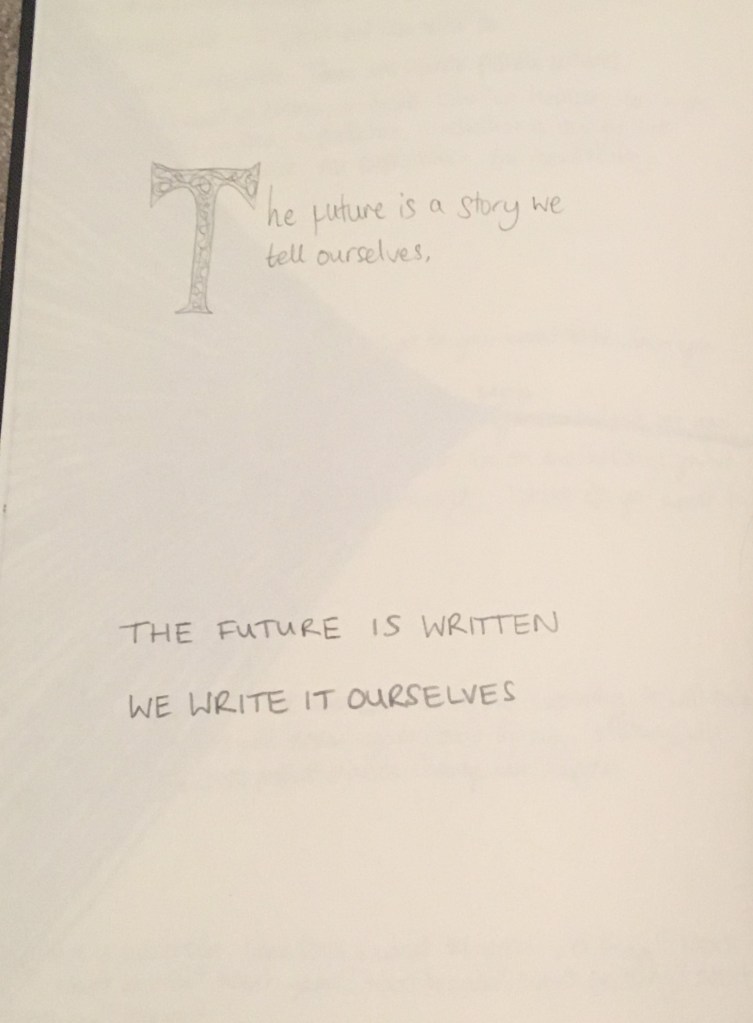 The future is a story we
tell ourselves.
THE FUTURE IS WRITTEN
WE WRITE IT OURSELVES